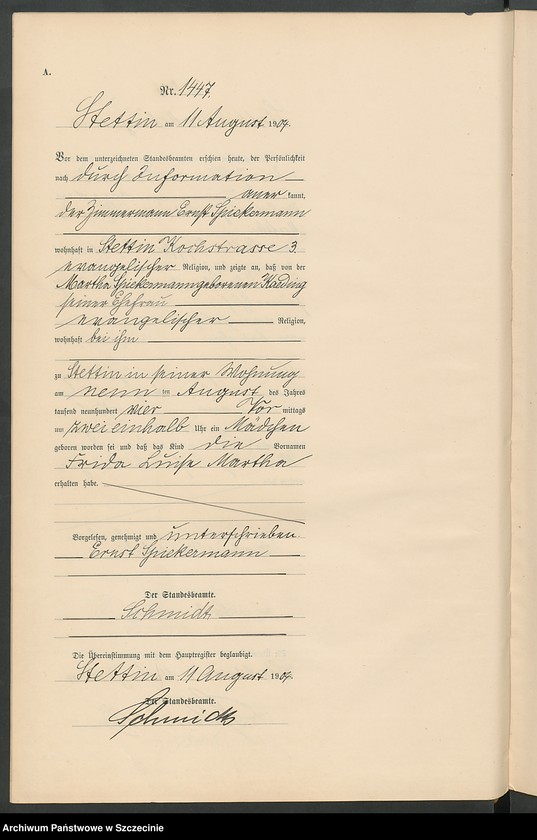 A.
Nr. 1447.
Stettin am 11 August 1904.
Vor dem unterzeichneten Standesbeamten erschien heute, der Persönlichkeit
nach durch Information
aner kannt,
der Zimmermann Ernst Spiekermann
wohnhaft in Stettin Kochstrasse 3.
evangelischer Religion, und zeigte an, daß von der
Martha Spiekermann geborenen Kading
seiner Ehefrau
evangelischer Religion,
wohnhaft bei ihm
zu Stettin in seiner Wohnung
am neun ten August des Jahres
tausend neunhundert vier Vor mittags
um zwei einhalb Uhr ein Mädchen
geboren worden sei und daß das Kind die Vornamen
Frida Luise Martha
erhalten habe.
Vorgelesen, genehmigt und unterschrieben.
Ernst Spiekermann
Der Standesbeamte.
Schmidt
Die Übereinstimmung mit dem Hauptregister beglaubigt.
Stettin am 11 August 1904.
Der Standesbeamte.
Schmidt
Archiwum Państwowe w Szczecinie